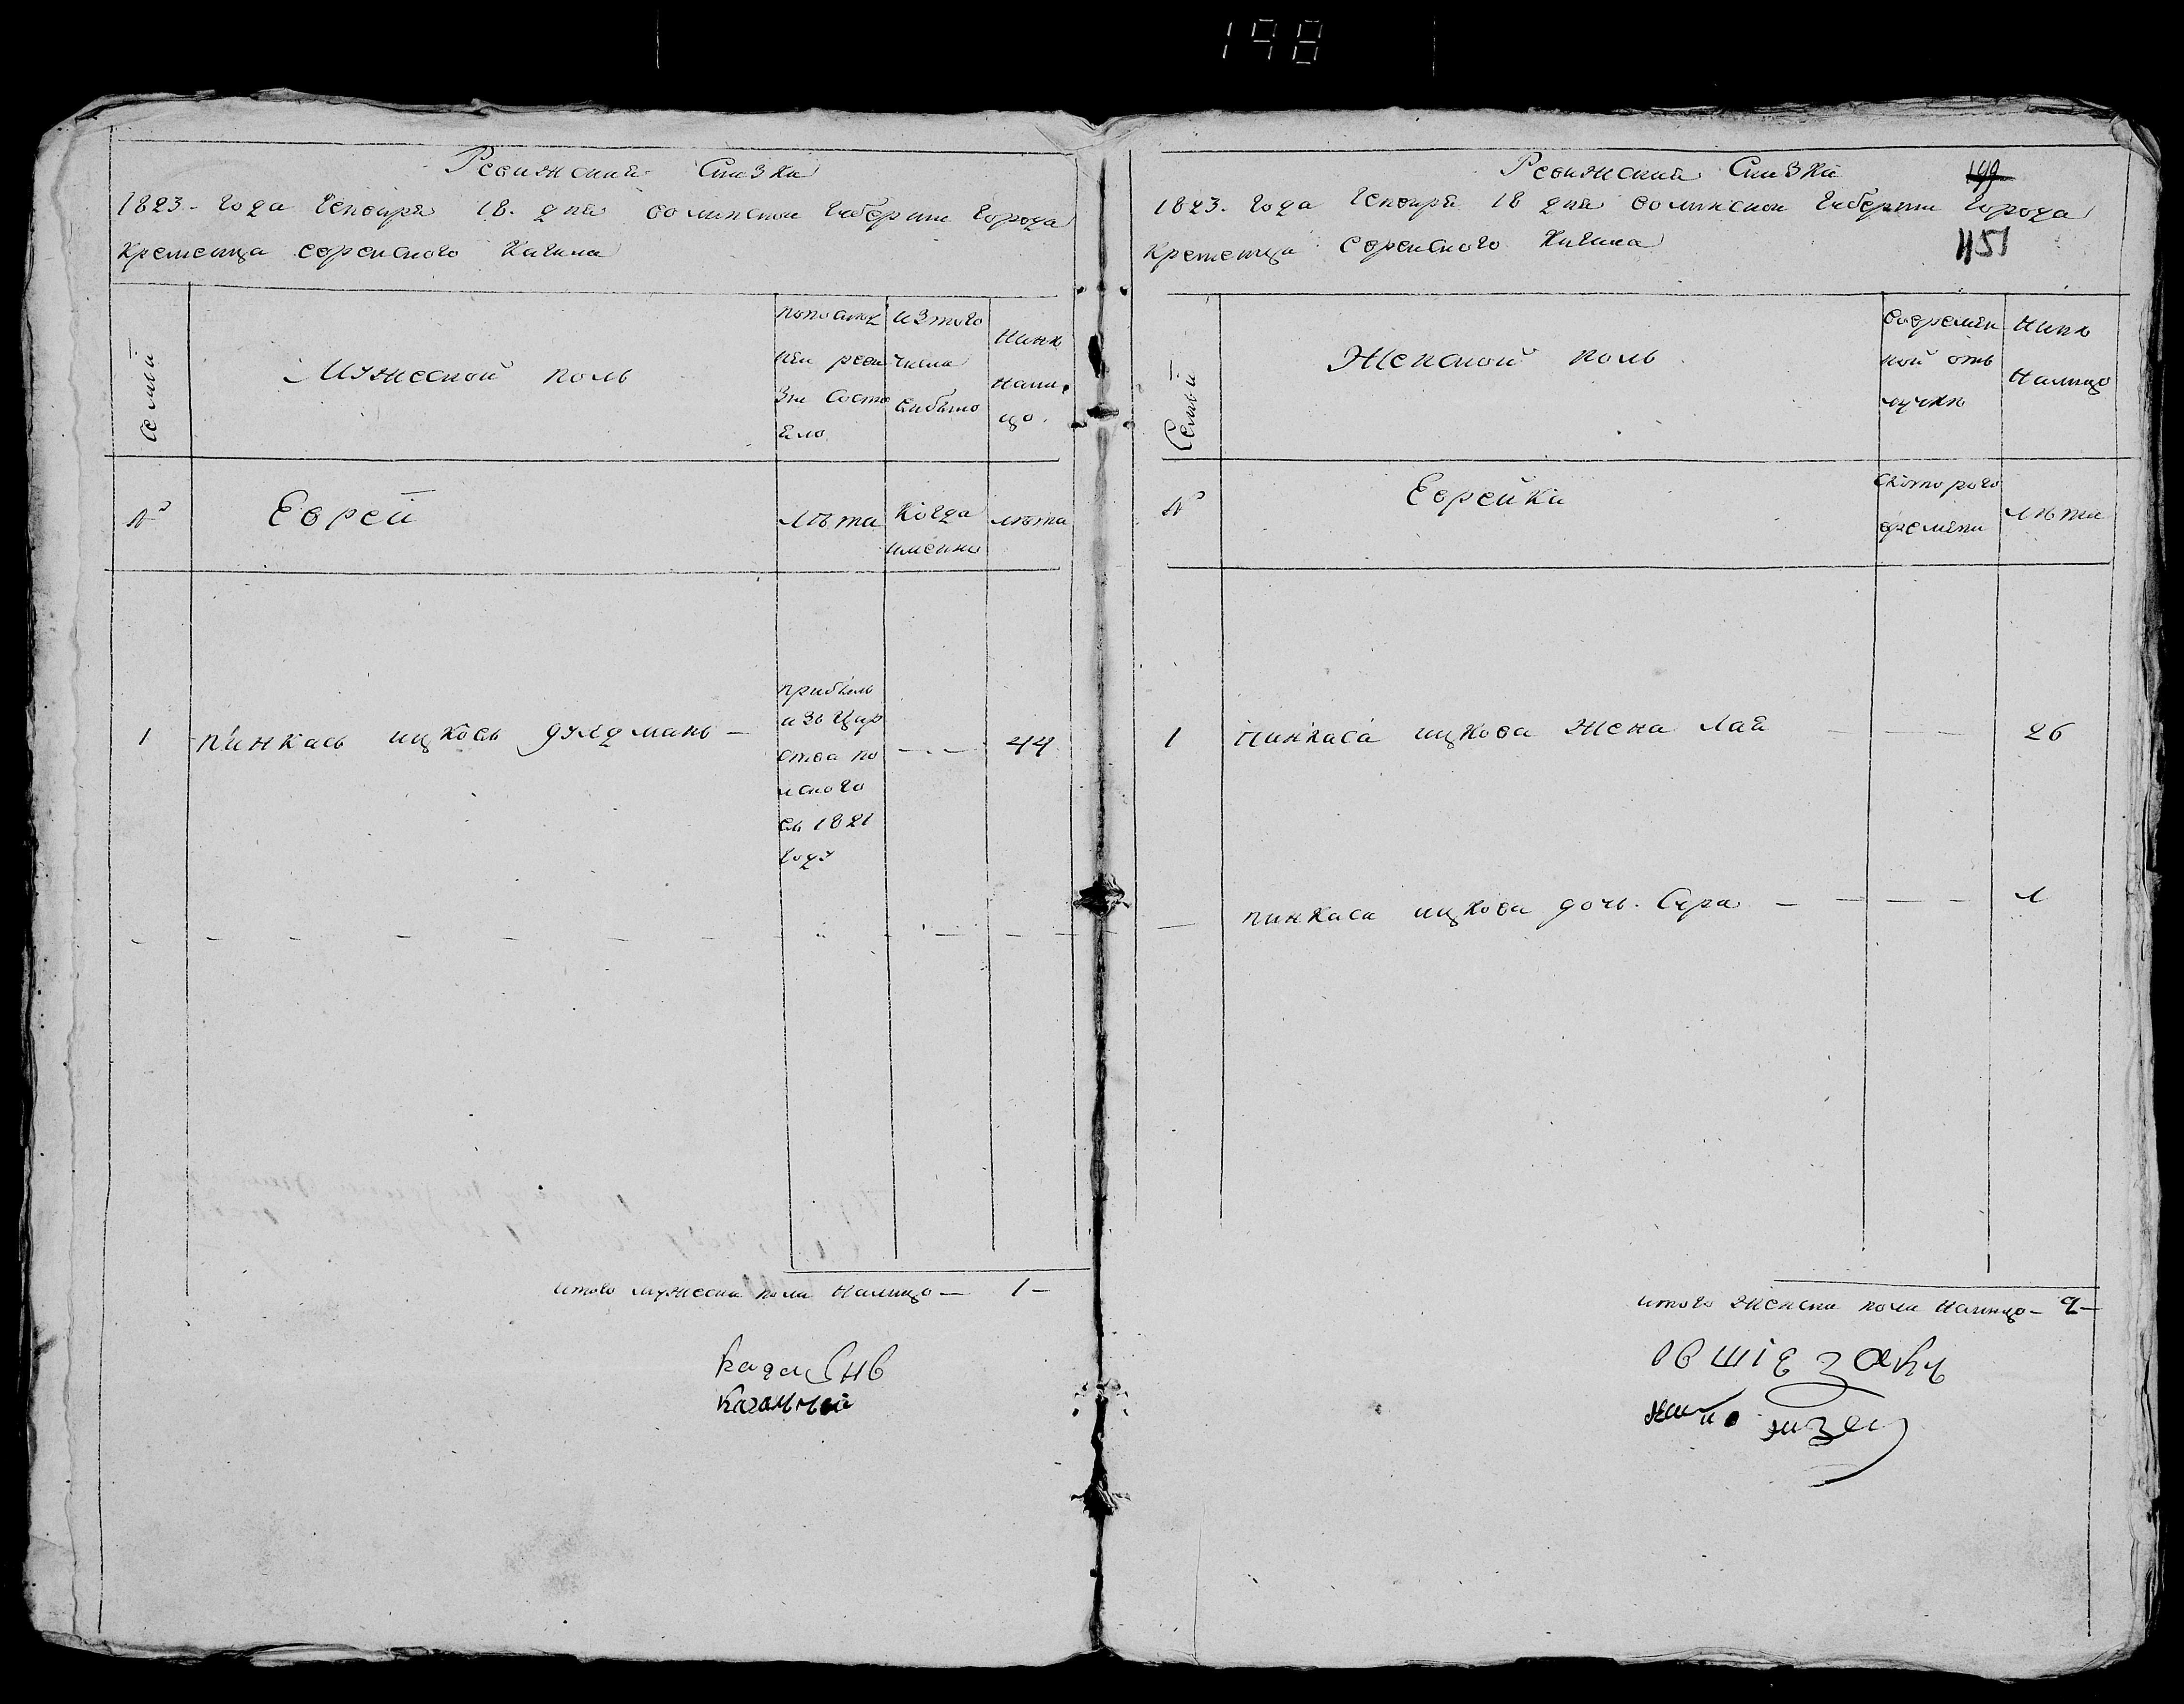 198
Ревижская Сказка
1823 - года Генваря 18. дня волинской губернии города
Кременца еврейского Кагала
Семьи
Мужеской поль
по последней ревизии состояло
из того числа выбыло
Ныне налицо.
№
Еврей
лѣта
Когда именно
лѣта
1 пинкась ицковь дулдмань —
прибыль
изь Цар
ства по
лского
вь 1821
году
— 44
Итого мужеска пола налицо — 1 —
Кагальный
Ревижская Сказка
199
1823. года Генваря 18 дня волинской губернии города
Кременца Еврейского Кагала
1151
Семьи
Женской поль
во времен
ной отъ
лучке
Нынѣ
налицо
№
Еврейка
с которого
времени
лѣта
1 пинкаса ицкова жена Лая — — — 26
пинкаса ицкова дочь. Сура — — — — 1
итого женска пола налицо — 2 —